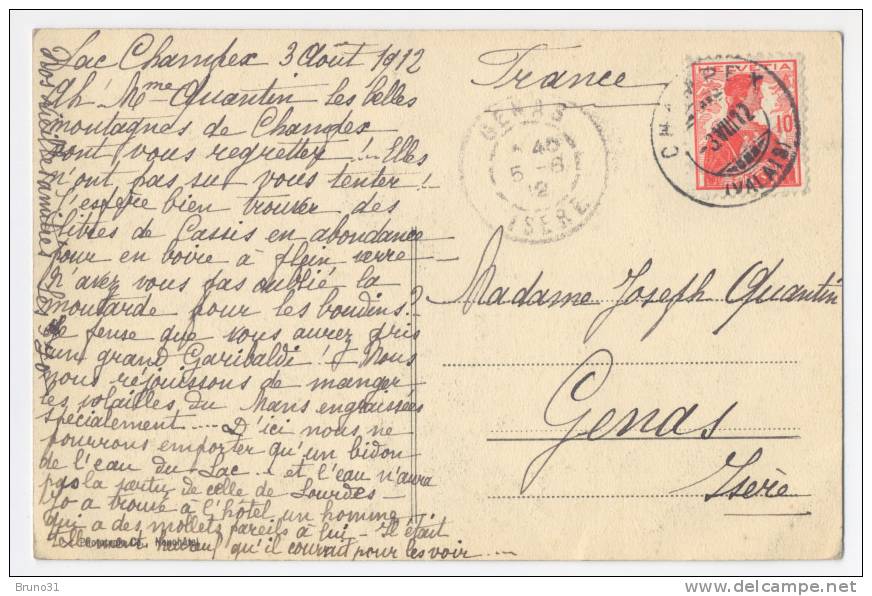 Lac Champex 3 Août 1912
Ah! Mme Quantin les belles
montagnes de Champex
vont vous regretter !.. Elles
n'ont pas su vous tenter !
J'espère bien trouver des
litres de Cassis en abondance
pour en boire à plein verre
N'avez vous pas oublié la
moutarde pour les boudins ?
Je pense que vous aurez pris
un grand Garibaldi ! Nous
nous réjouissons de manger
les volailles du Mans engraissées
spécialement .... D'ici nous ne
pourrons emporter qu'un bidon
de l'eau du Lac .. et l'eau n'aura
pas la vertu de celle de Lourdes -
Jo a trouvé à l'hôtel un homme
qui a des mollets pareils à lui - Il était
tellement qu'il courait pour les voir ....
France
HELVETIA
10
CHAMPEX
3.VIII.12
(VALAIS)
GENAS
5 -8
12
ISERE
Madame Joseph Quantin
Genas
Isère
Bruno31
delcampe.net